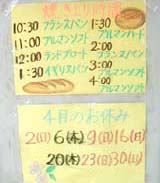 焼き上り時間
10:30 フランスパン
11:00 アルマンソフト
12:00 ランドブロート
1:30 イギリスパン
1:30 アルマンハード
2:00 フランスパン
4:00 アルマンソフト
4月のお休み
2(日) 6(木) 9(日) 16(日)
20(木) 23(日) 30(日)